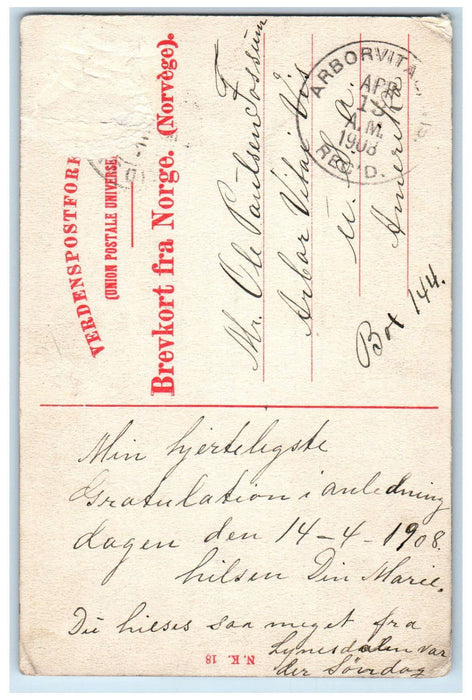 VERDENSPOSTFORE
(UNION POSTALE UNIVERSE
Brevkort fra Norge. (Norvège).
Mr. Ole Paulsen Fossum
Arbor Vitae Vis
U. S. a.
Amerika
Box 144.
ARBORVITAE
APR
13
A.M.
1908
REC'D.
Min hjerteligste
Gratulation i anledning
dagen den 14-4-1908.
hilsen Din Marie.
Du hilses saa meget fra
Lynesdalen var
der Søndag
N. K. 18